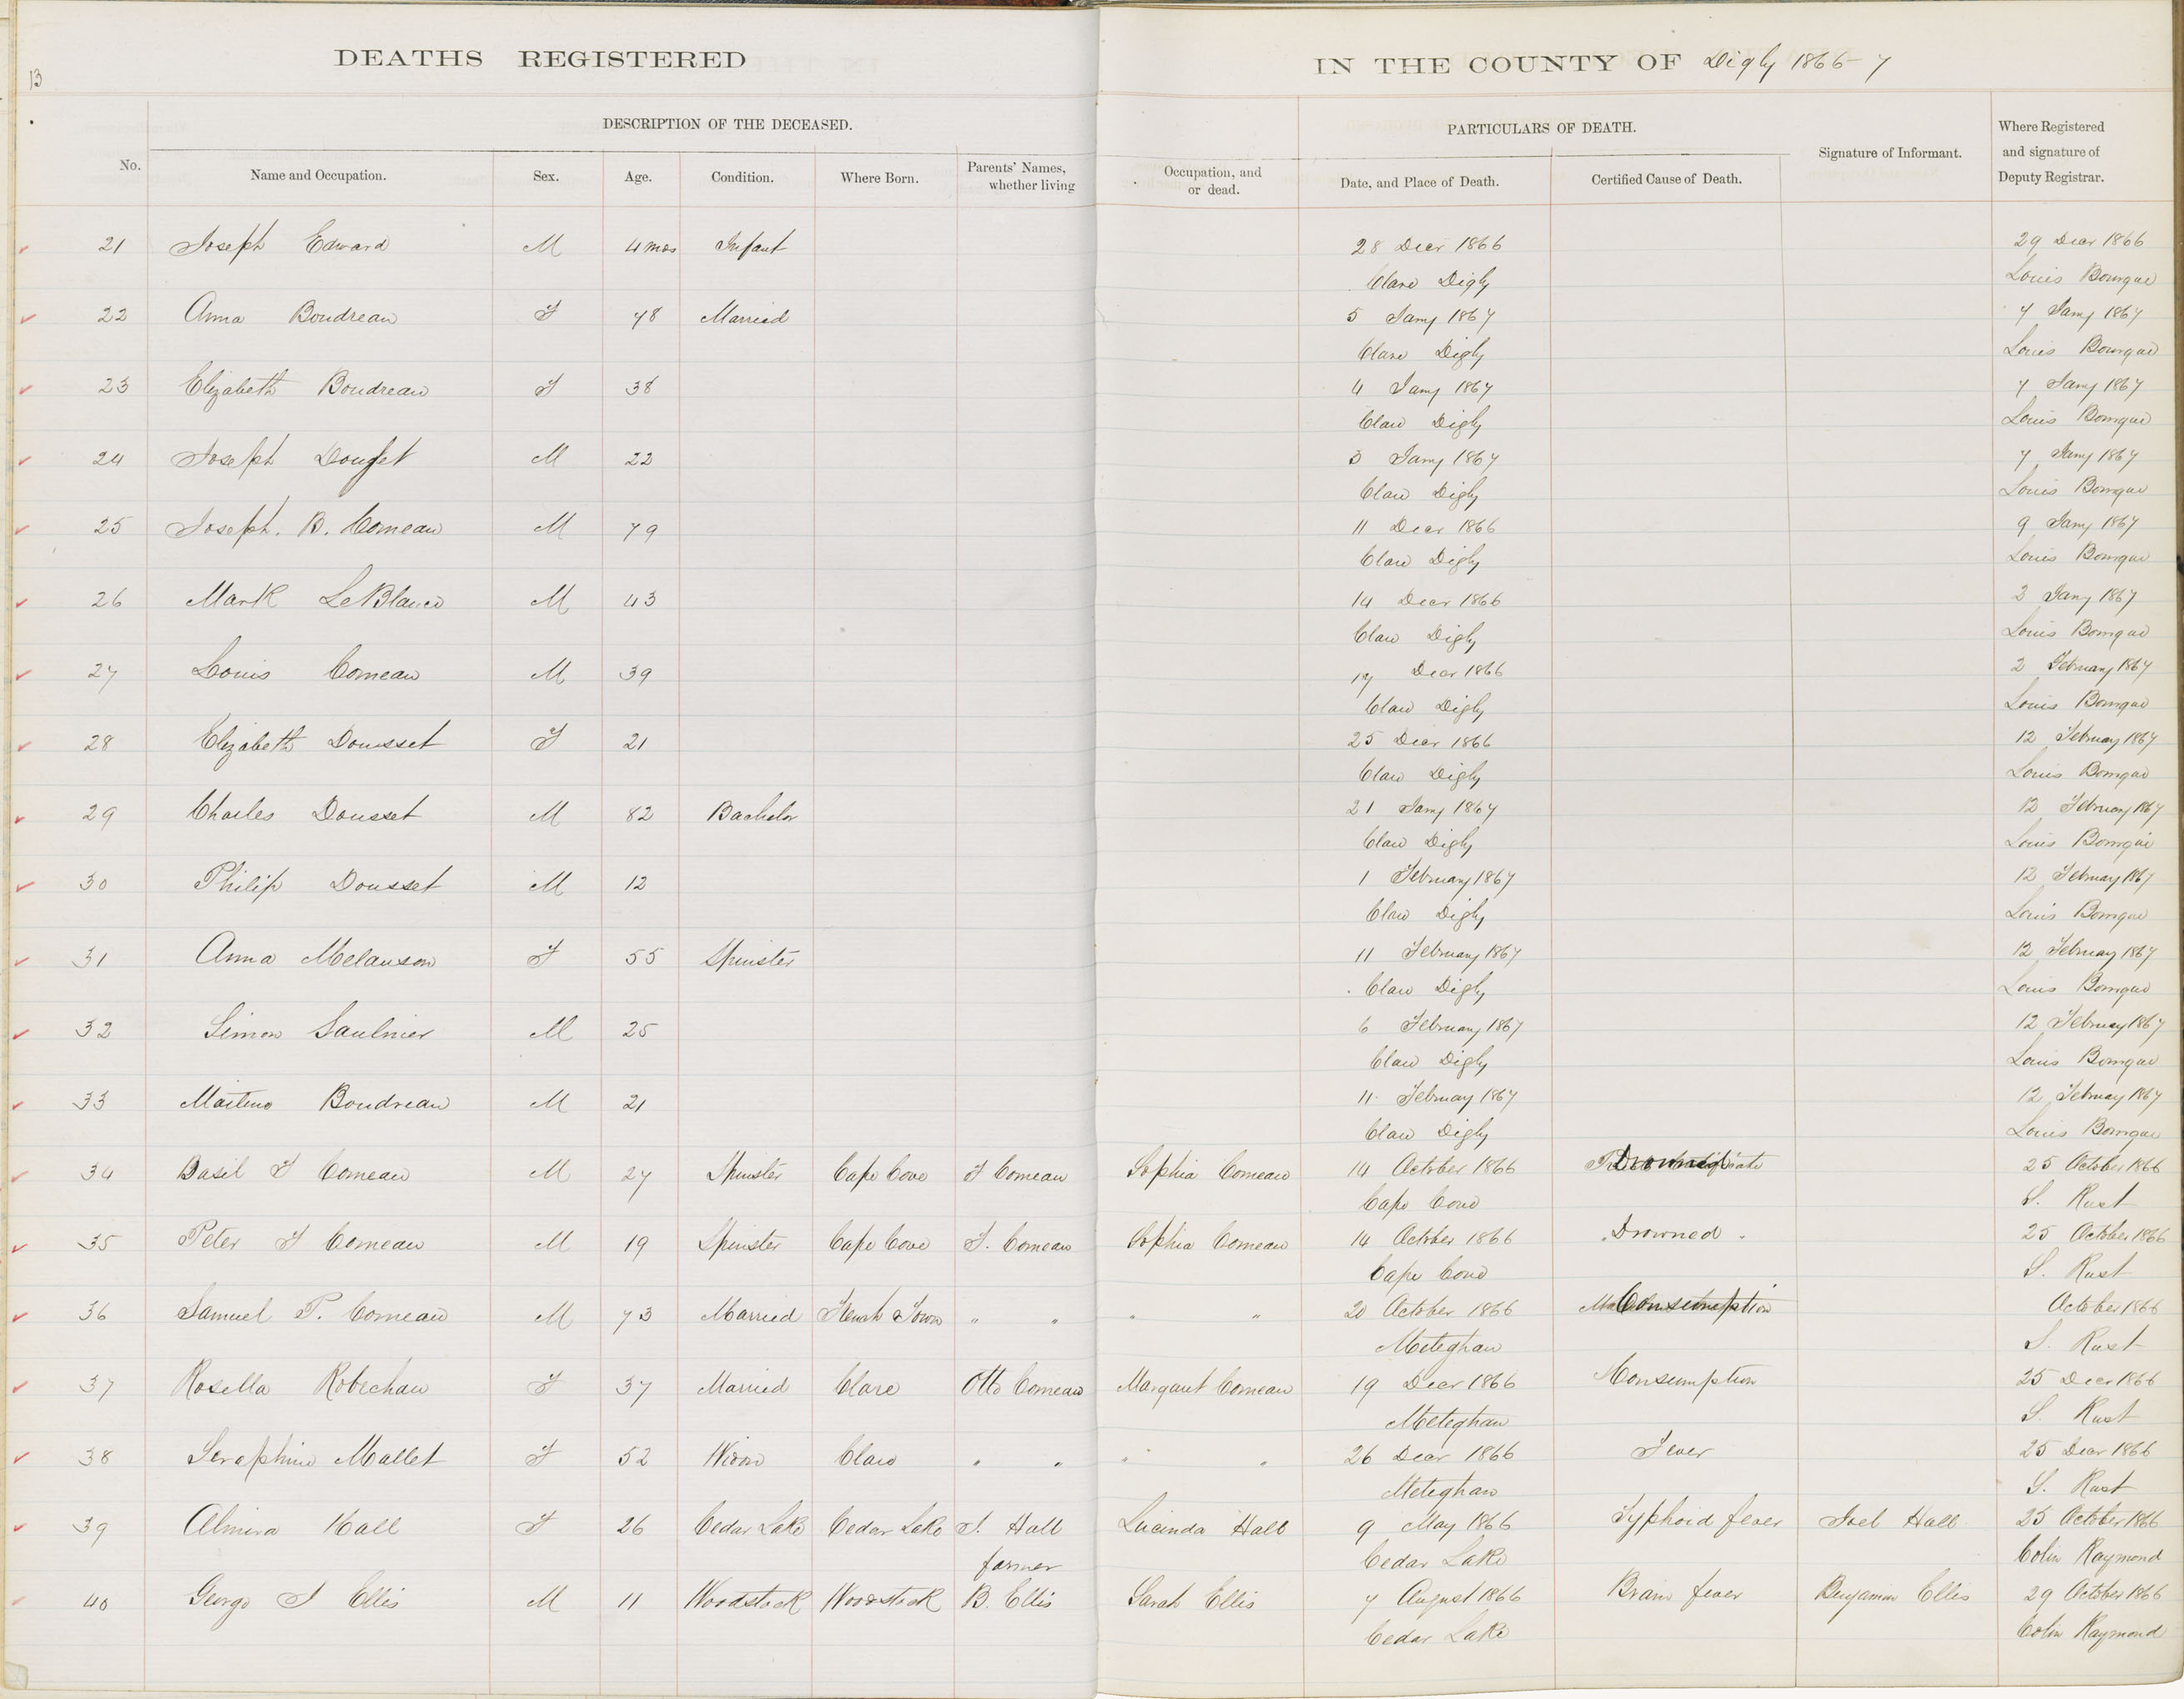 DEATHS REGISTERED IN THE COUNTY OF Digby 1866-7
13
DESCRIPTION OF THE DECEASED. PARTICULARS OF DEATH.
No. Name and Occupation. Sex. Age. Condition. Where Born. Parents' Names, whether living Occupation, and or dead. Date, and Place of Death. Certified Cause of Death. Signature of Informant. Where Registered and signature of Deputy Registrar.
21 Joseph Edward M 4 mos Infant 28 Decr 1866 29 Decr 1866
Clare Digby Louis Bourque
22 Anna Boudreau F 78 Married 5 Jany 1867 7 Jany 1867
Clare Digby Louis Bourque
23 Elizabeth Boudreau F 38 4 Jany 1867 7 Jany 1867
Clare Digby Louis Bourque
24 Joseph Doucet M 22 3 Jany 1867 7 Jany 1867
Clare Digby Louis Bourque
25 Joseph. B. Comeau M 79 11 Decr 1866 9 Jany 1867
Clare Digby Louis Bourque
26 Mark LeBlanc M 43 14 Decr 1866 2 Jany 1867
Clare Digby Louis Bourque
27 Louis Comeau M 39 17 Decr 1866 2 February 1867
Clare Digby Louis Bourque
28 Elizabeth Dousset F 21 25 Decr 1866 12 February 1867
Clare Digby Louis Bourque
29 Charles Dousset M 82 Bachelor 21 Jany 1867 12 February 1867
Clare Digby Louis Bourque
30 Philip Dousset M 12 1 February 1867 12 February 1867
Clare Digby Louis Bourque
31 Anna Melanson F 55 Spinster 11 February 1867 12 February 1867
Clare Digby Louis Bourque
32 Simon Saulnier M 25 6 February 1867 12 February 1867
Clare Digby Louis Bourque
33 Boudreau M 21 11 February 1867 12 February 1867
Clare Digby Louis Bourque
34 Basil F Comeau M 27 Spinster Cape Cove F Comeau Sophia Comeau 14 October 1866 Drowned 25 October 1866
Cape Cove S. Rust
35 Peter F Comeau M 19 Spinster Cape Cove F. Comeau Sophia Comeau 14 October 1866 Drowned 25 October 1866
Cape Cove S. Rust
36 Samuel P. Comeau M 73 Married French Town " " " " 20 October 1866 Consumption October 1866
Meteghan S. Rust
37 Rosella Robechau F 37 Married Clare Otto Comeau Margaret Comeau 19 Decr 1866 Consumption 25 Decr 1866
Meteghan S. Rust
38 Seraphine Mallet F 52 Widow Clare " " " " 26 Decr 1866 Fever 25 Decr 1866
Meteghan S. Rust
39 Almira Hall F 26 Cedar Lake Cedar Lake J. Hall Lucinda Hall 9 May 1866 Typhoid fever Joel Hall 25 October 1866
farmer Cedar Lake Colin Raymond
40 George J Ellis M 11 Woodstock Woodstock B. Ellis Sarah Ellis 7 August 1866 Brain fever Benjamin Ellis 29 October 1866
Cedar Lake Colin Raymond